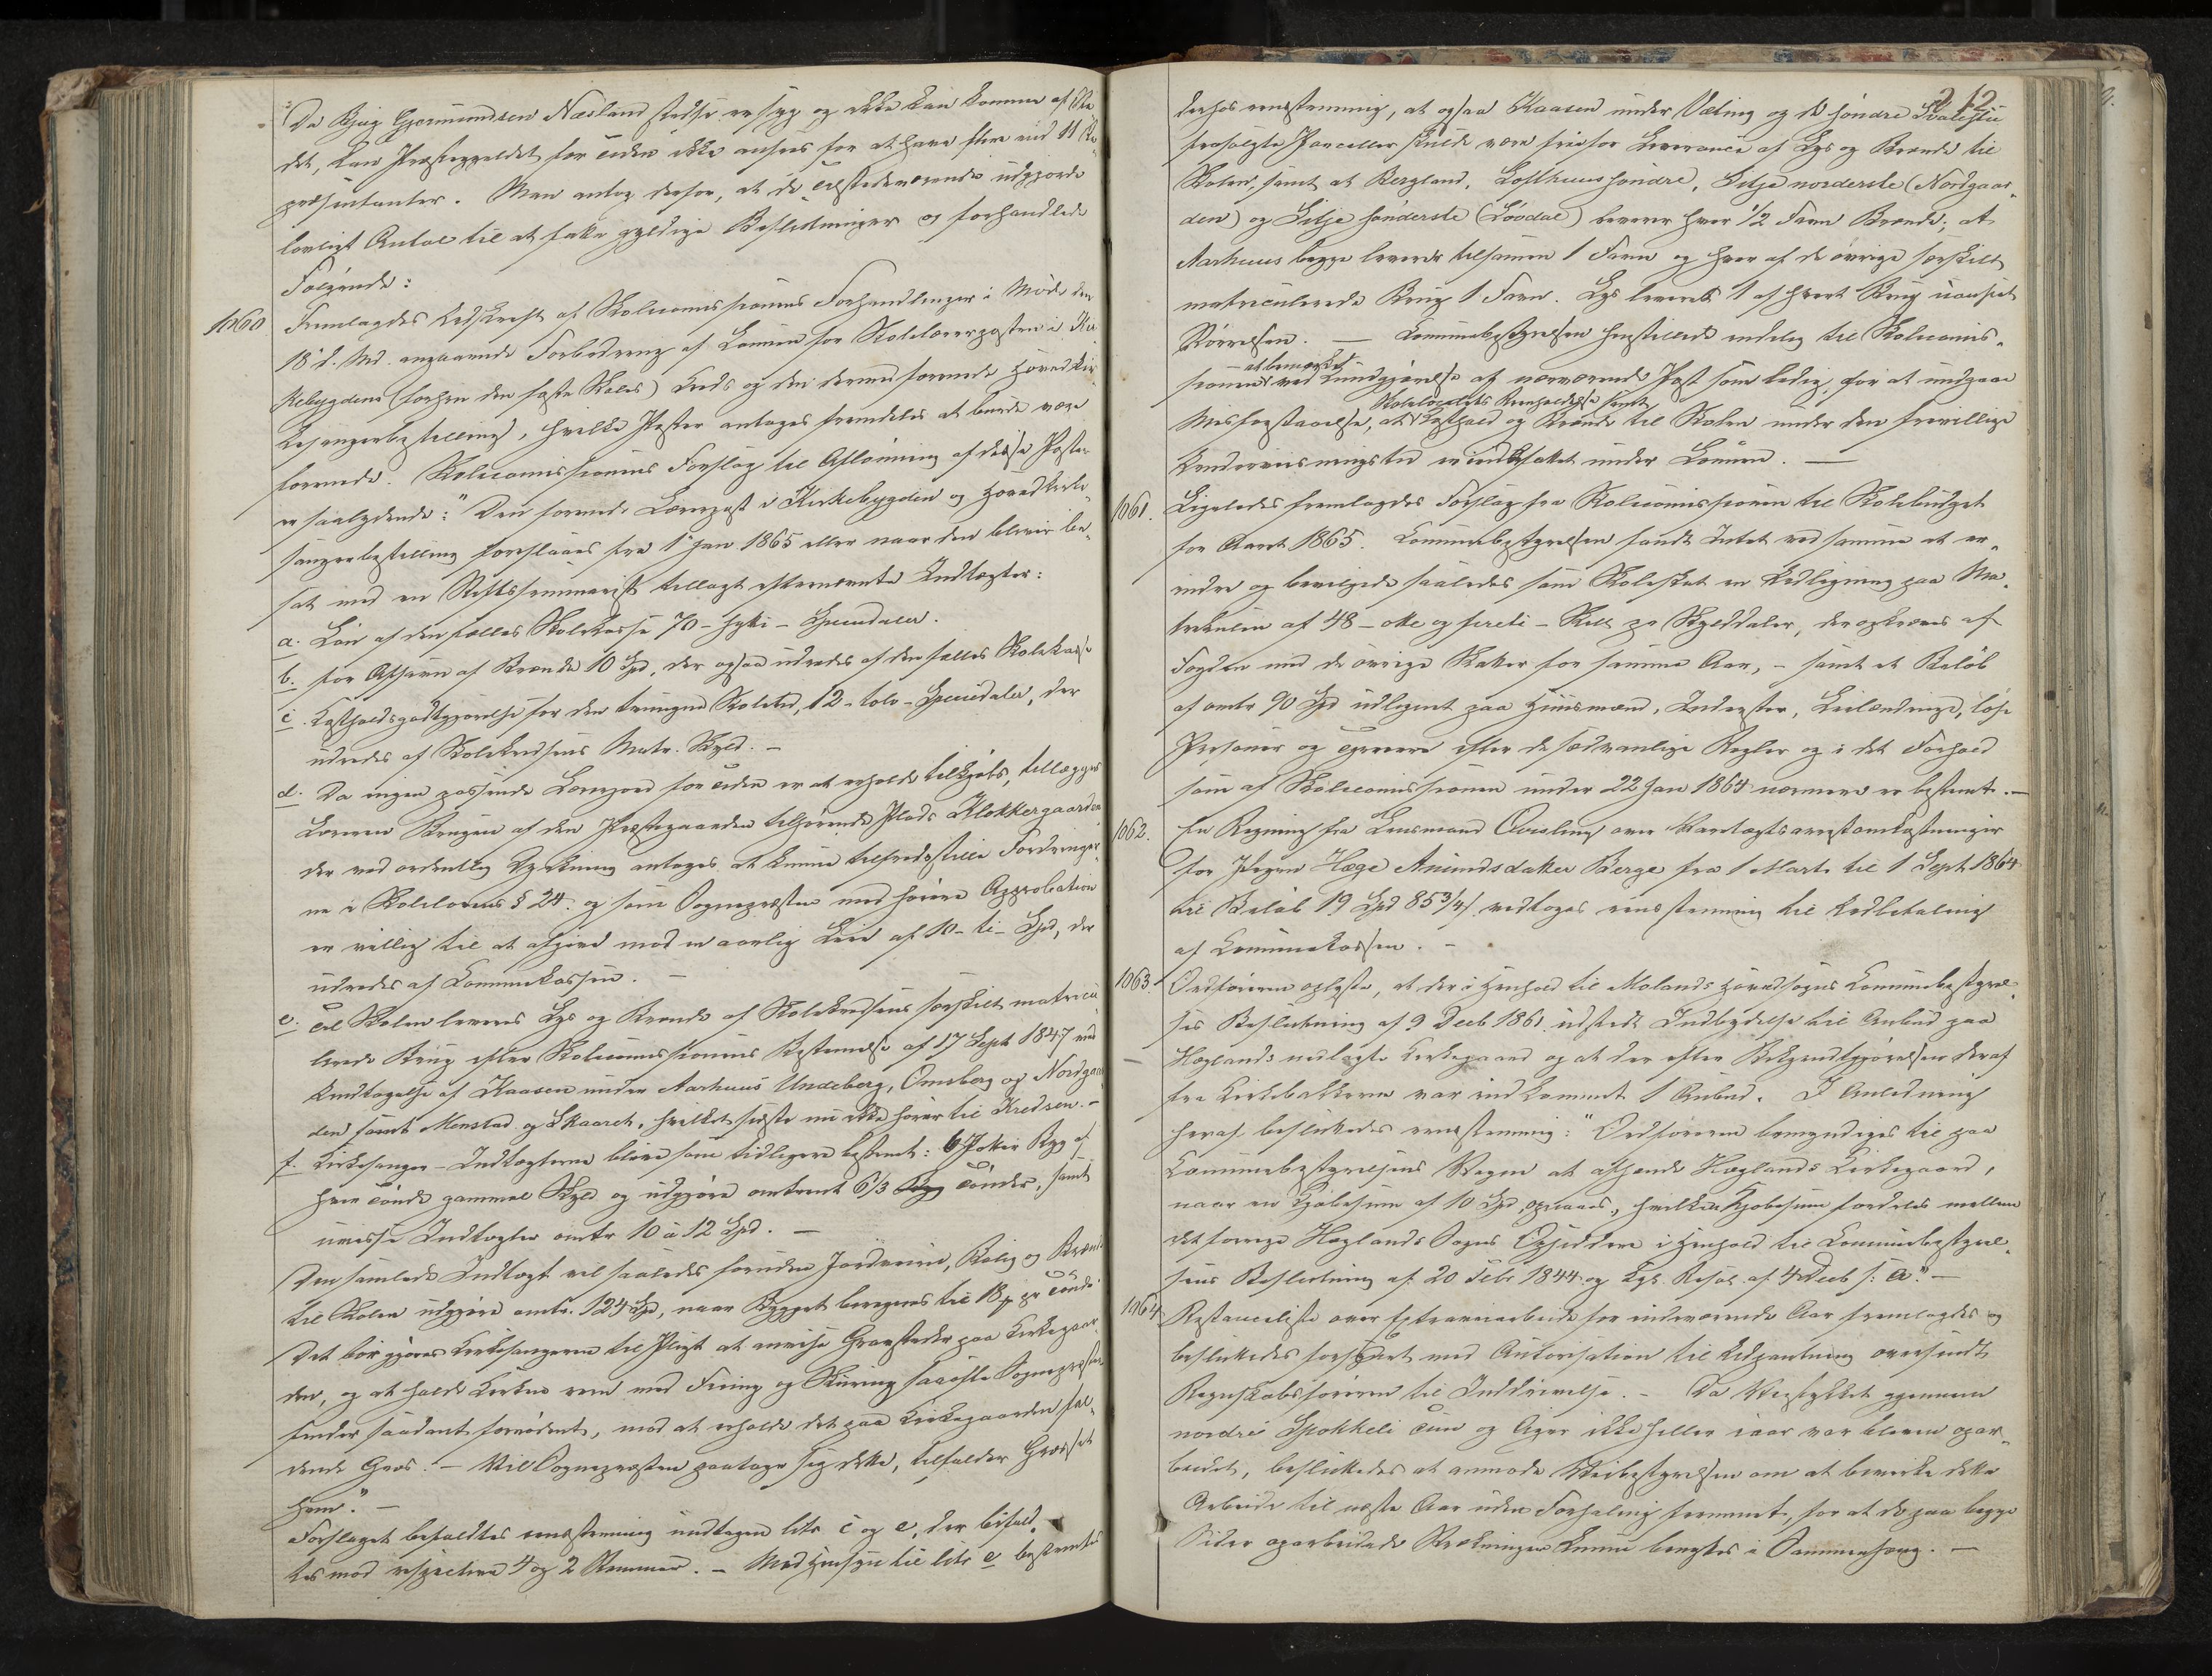 Da Bjug Gjermundsen Næsland stedse er syg og ikke kan komme af Ste
det, kan Præstegjeldet for tiden ikke ansees for at have flere end 11 Re„
præsentanter. Man antog derfor, at de tilstedeværende udgjorde
lovligt Antal til at fatte gyldige Beslutninger og forhandlede
Følgende:
1060. Fremlagdes Udskrift af Skolecommissionens Forhandlinger i Møde den
18 d. Md. angaaende Forbedring af Lønnen for Skolelærerposten i Kir
kebygdens (forhen den faste Skoles) Kreds og den dermed forenede Hoved kir„
kesangerbestilling, hvilke Poster antages fremdeles at burde være
forenede. Skolecommissionens Forslag til Aflønning af disse Poster
er saalydende: "Den forenede Lærerpost i Kirkebygden og Hovedkirke„
sangerbestilling foreslaaes fra 1 Jan 1865 eller naar den bliver be„
sat med en Stiftsseminarist tillagt efternævnte Indtægter:
a. Løn af den fælles Skolekasse 70 - sytti - Speciedaler.
b. for Afsavn af Brænde 10 Spd, der ogsaa udredes af den fælles Skolekasse
c. Kostholdsgodtgjørelse for den tvungne Skoletid, 12 - tolv - Speciedaler, der
udredes af Skolekredsens Matr. Skyld. -
d. Da ingen passende Lærerjord for tiden er at erholde tilkjøbs, tillægges
Læreren Brugen af den Præstegaarden tilhørende Plads Klokkergaarden
der ved ordentlig Dyrkning antages at kunne tilfredsstille Fordringer„
ne i Skolelovens § 24. og som Sognepræsten med høiere Approbation
er villig til at afgive mod en aarlig Leie af 10 - ti - Spd, der
udredes af Communekassen. -
e. Til Skolen leveres Lys og Brænde af Skolekredsens særskilt matricu
lerede Brug efter Skolecommissionens Bestemmelse af 17 Sept 1847 med
Undtagelse af Kaasen under Aarhuus Undeberg, Omsberg og Nordgaar
den samt Menstad og Skaaret, hvilket sidste nu ikke hører til Kredsen. -
f. Kirkesanger-Indtægterne blive som tidligere bestemt: 6 Potter Byg af
hver Tønde gammel Skyld og udgjøre omtrent 6 1/3 Tønder, samt
uvisse Indtægter omtr 10 à 12 Spd. -
Den samlede Indtægt vil saaledes foruden Jordveien, Bolig og Brænde
til Skolen udgjøre omtr. 124 Spd, naar Bygget beregnes til pr Tønde
Det bør gjøres Kirkesangeren til Pligt at anvise Gravsteder paa Kirkegaar
den, og at holde Kirken ren med Feining og Skuring saaofte Sognepræsten
finder saadant fornødent, mod at erholde det paa Kirkegaarden fal„
dende Græs. - Vil Sognepræsten paatage sig dette, tilfalder Græsset
ham". -
Forslaget bifaldtes enstemmig undtagen litr c og e, der bifald„
tes mod respective 4 og 2 Stemmer. - Med Hensyn til litr e bestemtes
212
derhos enstemmig, at ogsaa Kaasen under Væting og de søndre
frasolgte Parceller skulde være frie for Leverance af Lys og Brænde til
Skolen, samt at Bergland, Lofthuus søndre, Lilje norderste (Nordgaar„
den) og Lilje sønderste (Løvdal) leverer hver 1/2 Favn Brænde; at
Aarhuus begge leverer tilsammen 1 Favn og hver af de øvrige særskilt
matriculerede Brug 1 Favn. Lys leveres 1 af hvert Brug uanseet
Størrelsen. - Communebestyrelsen henstillede endelig til Skolecommis„
sionen - at bemærke ved Kundgjørelse af nærværende Post som ledig, for at undgaae
Misforstaaelse, at Skolelocalets Renholdelse samt Kosthold og Brænde til Skolen under den frivillige
Undervisningstid er indbefattet under Lønnen. -
1061. Ligeledes fremlagdes Forslag fra Skolecommissionen til Skolebudget
for Aaret 1865. Communebestyrelsen fandt Intet ved samme at er„
indre og bevilgede saaledes som Skoleskat en Udligning paa Ma„
trikulen af 48 - otte og fireti - Skill pr Skylddaler, der opkræves af
Fogden med de øvrige Skatter for samme Aar, - samt et Beløb
af omtr 90 Spd udlignet paa Huusmænd, Inderster, Leilændinge, løse
Personer og Tjenere efter de sædvanlige Regler og i det Forhold
som af Skolecommissionen under 22 Jan 1864 nærmere er bestemt. -
1062. En Regning fra Lensmand Qvisling over Varetægtsarrestomkostninger
for Pigen Hæge Amundsdatter Berge fra 1 Marts til 1 Sept 1864
til Beløb 19 Spd 85 3/4 s vedtoges eenstemmig til Udbetaling
af Communekassen. -
1063. Ordføreren oplyste, at der i Henhold til Molands Hovedsogns Communebestyrel„
ses Beslutning af 9 Decb 1861 udstedt Indbydelse til Anbud paa
Høglands nedlagte Kirkegaard og at der efter Bekjendtgjørelsen deraf
fra Kirkebakkerne var indkommet 1 Anbud. I Anledning
heraf besluttedes eenstemmig: "Ordføreren bemyndiges til paa
Communebestyrelsens Vegne at afhænde Høglands Kirkegaard,
naar en Kjøbesum af 10 Spd opnaaes, hvilken Kjøbesum fordeles mellem
det forrige Høglands Sogns Opsiddere i Henhold til Communebestyrel„
sens Beslutning af 20 Febr 1844 og Kgl. Resol. af 4 Decb s. A." -
1064. Restanceliste over Extraveiarbeide for indeværende Aar fremlagdes og
besluttedes forsynet med Autorisation til Udpantning oversendt
Regnskabsføreren til Inddrivelse. - Da Veistykket gjennem
nordre Spokkeli Tun og Ager ikke heller iaar var bleven opar„
beidet, besluttedes at anmode Veibestyrelsen om at bevirke dette
Arbeide til næste Aar uden Forhaling fremmet, for at de paa begge
Sider oparbeidede Strækninger kunne benyttes i Sammenhæng. -